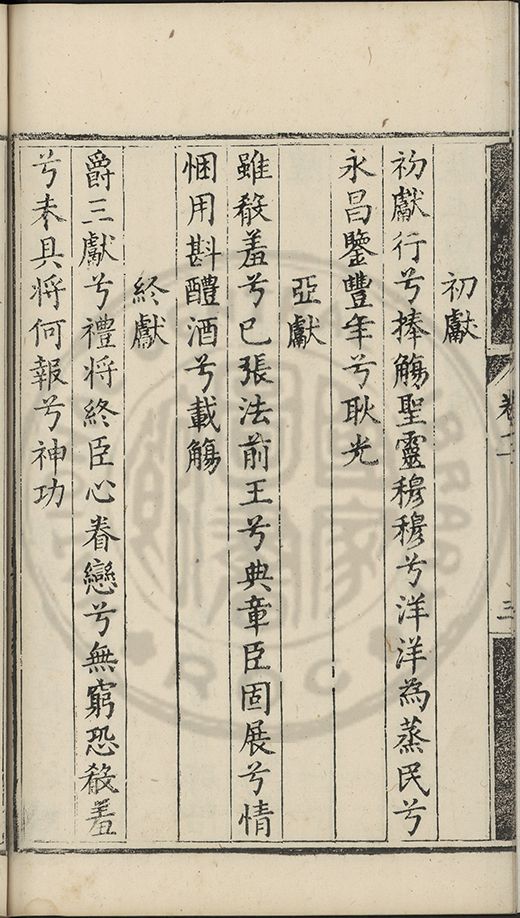 初獻
初獻行兮捧觴聖靈穆穆兮洋洋為蒸民兮
永昌鑒豐年兮耿光
亞獻
雖殽羞兮已張法前王兮典章臣固展兮情
悃用斟醴酒兮載觴
終獻
爵三獻兮禮將終臣心眷戀兮無窮恐殽羞
兮未具將何報兮神功
卷二
三